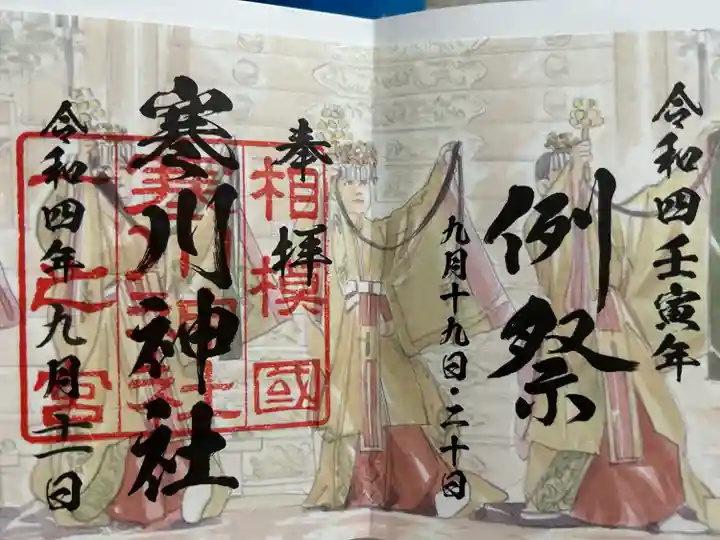 令和四壬寅年
例祭
九月十九日・二十日
奉拝
相模國
寒川神社
一之宮
令和四年九月十一日